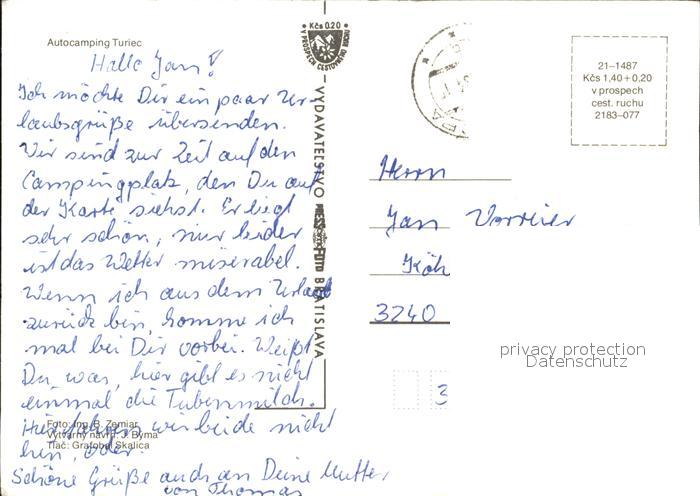 Autocamping Turiec
Hallo Jan!
Ich möchte Dir ein paar Ur-
laubsgrüße übersenden.
Wir sind zur Zeit auf den
Campingplatz, den Du auf
der Karte siehst. Er liegt
sehr schön, nur leider
ist das Wetter miserabel.
Wenn ich aus dem Urlaub
zurück bin, komme ich
mal bei Dir vorbei. Weißt
Du was, hier gibt es nicht
einmal die Tubenmilch.
Hier fahren wir beide nicht
hin, oder
Schöne Grüße auch an Deine Mutter
von Thomas
Foto: Ing. B. Zemiar
Výtvarný návrh: J. Byma
Tlač: Grafobal Skalica
Kčs 0.20
V PROSPECH CESTOVNÉHO RUCHU
VYDAVATEĽSTVO
PRESSFOTO BRATISLAVA
21–1487
Kčs 1,40+0,20
v prospech
cest. ruchu
2183–077
Herrn
Jan
3240
3
privacy protection
Datenschutz